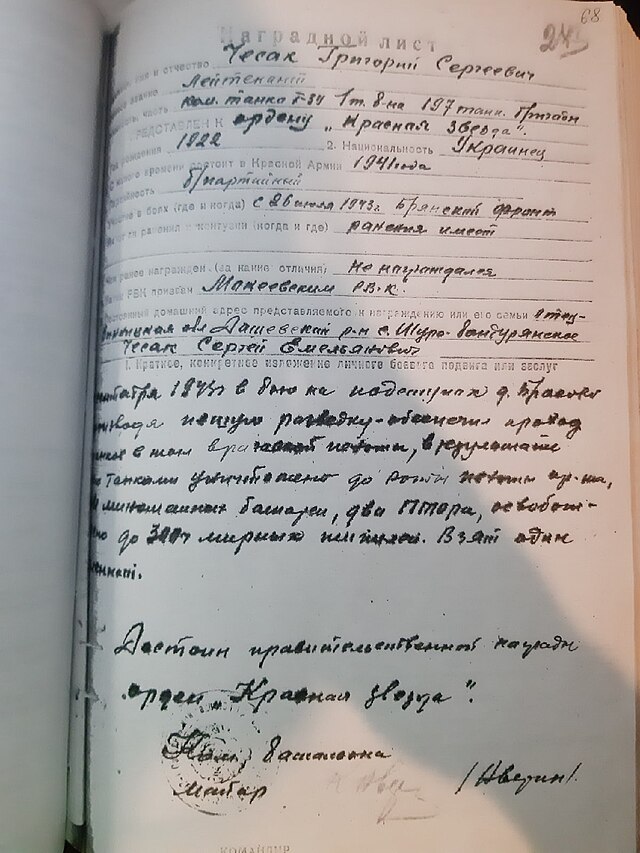 68
Наградной лист
243
имя и отчество Чесак Григорий Сергеевич
Лейтенант
часть ком. танка Т-34 1 т. б-на 197 танк. бригады
ПРЕДСТАВЛЕН К ордену „Красная Звезда".
рождения 1922 2. Национальность Украинец
какого времени состоит в Красной Армии 1941 года
Партийность б/партийный
Участие в боях (где и когда) с 26 июля 1943г. Брянский фронт
ли ранения и контузии (когда и где) ранения имеет
ранее награжден (за какие отличия) не награждался
Каким РВК призван Макеевским Р.В.К.
Постоянный домашний адрес представляемого к награждению или его семьи отец-
обл Дашевский р-н с.
Чесак Сергей Емельянович
1. Краткое, конкретное изложение личного боевого подвига или заслуг
1943г в бою на подступах д.
пешую разведку-обеспечил проход
танков в тыл вражеской пехоты, в результате
танками уничтожено до роты пехоты пр-ка,
минометных батареи, два ПТОра, освобож-
до 300 мирных жителей. Взят один
Достоин правительственной награды
орден „Красная звезда".
Ком, батальона
Майор /Аверин/.
КОМАНДИР